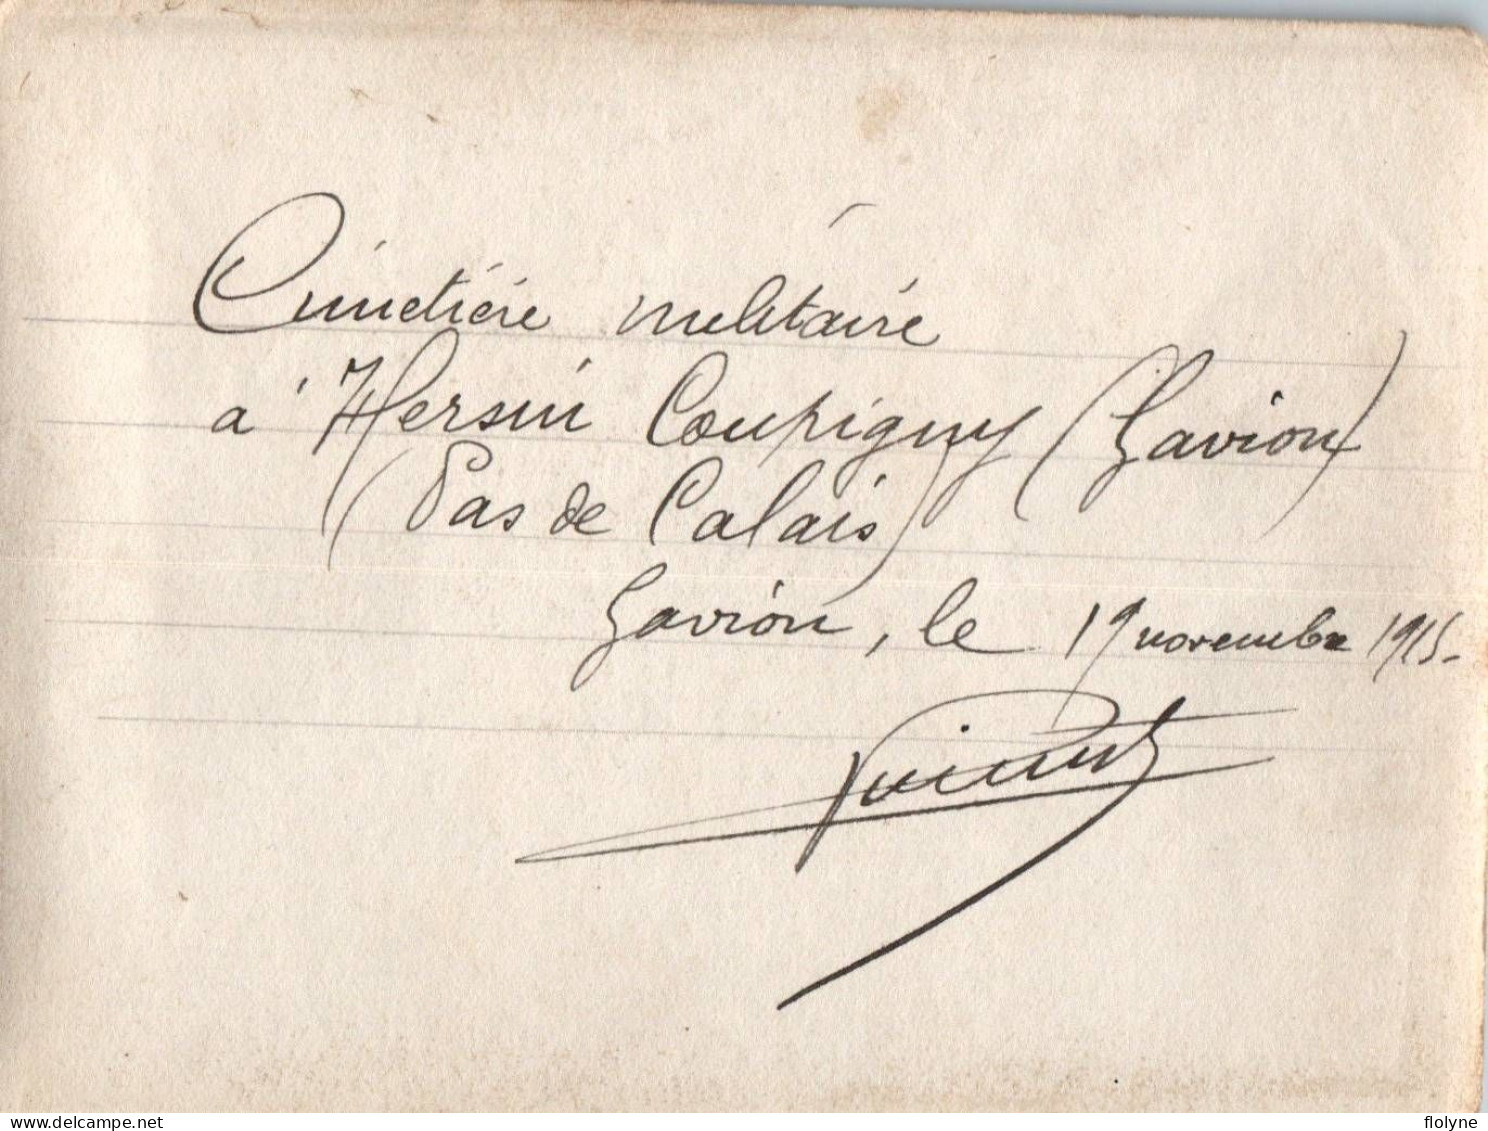 Cimetière militaire
à Hersin Coupigny (Gavion)
(Pas de Calais)
Gavion, le 19 novembre 1915.
delcampe.net
flolyne